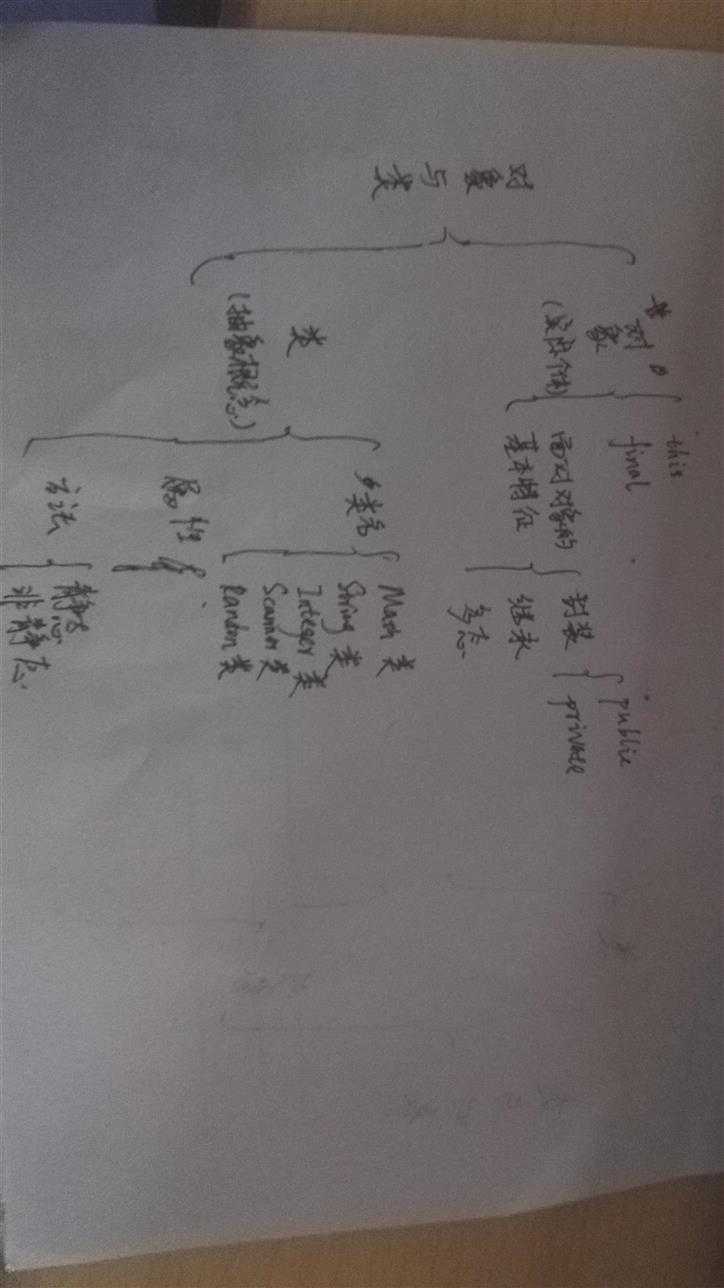 对象与类
对象
(实际个体)
this
final
面对对象的
基本特征
封装
继承
多态
public
private
类
(抽象概念)
类名
Math 类
String 类
Integer 类
Scanner 类
Random 类
属性
方法
静态
非静态